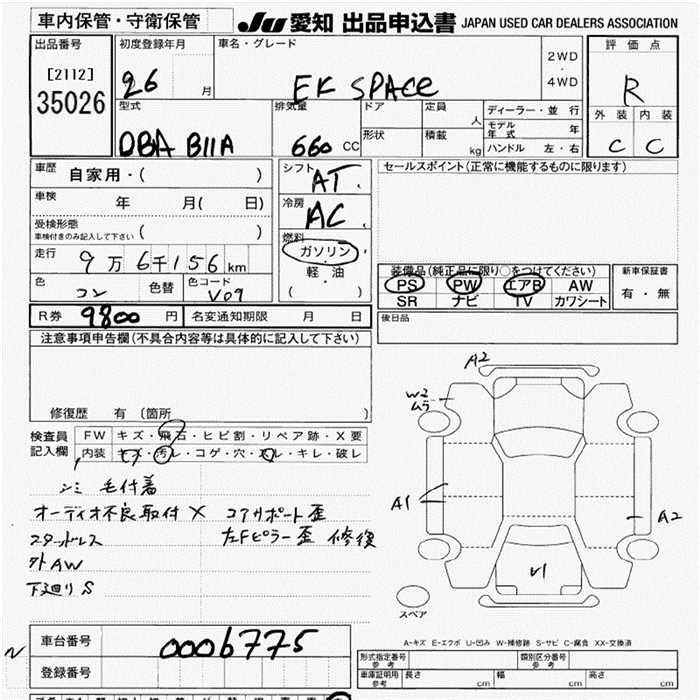 車内保管・守衛保管
JU 愛知 出品申込書 JAPAN USED CAR DEALERS ASSOCIATION
出品番号
[2112]
35026
初度登録年月
26 月
車名・グレード
EK SPACE
2WD
・
4WD
評価点
R
外装 内装
C C
型式
DBA B11A
排気量
660 CC
ドア
形状
定員
人
積載
kg
ディーラー・並行
モデル年式 年
ハンドル 左・右
車歴
自家用・( )
車検 年 月( 日)
受検形態
車検付きのみ記入して下さい ( )
走行
9万6千156km
色
コン
色替
色コード
V09
シフト
AT
冷房
AC
燃料
ガソリン
軽油
( )
セールスポイント(正常に機能するものに限ります)
装備品(純正品に限り○をつけてください)
PS PW エアB AW
SR ナビ TV カワシート
新車保証書
有・無
R券 9800 円
名変通知期限 月 日
後日品
注意事項申告欄(不具合内容等は具体的に記入して下さい)
修復歴 有 (箇所 )
検査員
記入欄
FW キズ・飛石・ヒビ割・リペア跡・X要
内装 キズ・汚レ・コゲ・穴・スレ・キレ・破レ
シミ 毛付着
オーディオ不良取付X コアサポート歪
スタッドレス 左Fピラー歪 修復
外AW
下廻りS
A2
W2
ムラ
A1
A2
V1
スペア
A-キズ E-エクボ U-凹み W-補修跡 S-サビ C-腐食 XX-交換済
車台番号
0006775
登録番号
N
形式指定番号
参考
類別区分番号
参考
車庫証明用
参考
長さ cm
幅 cm
高さ cm